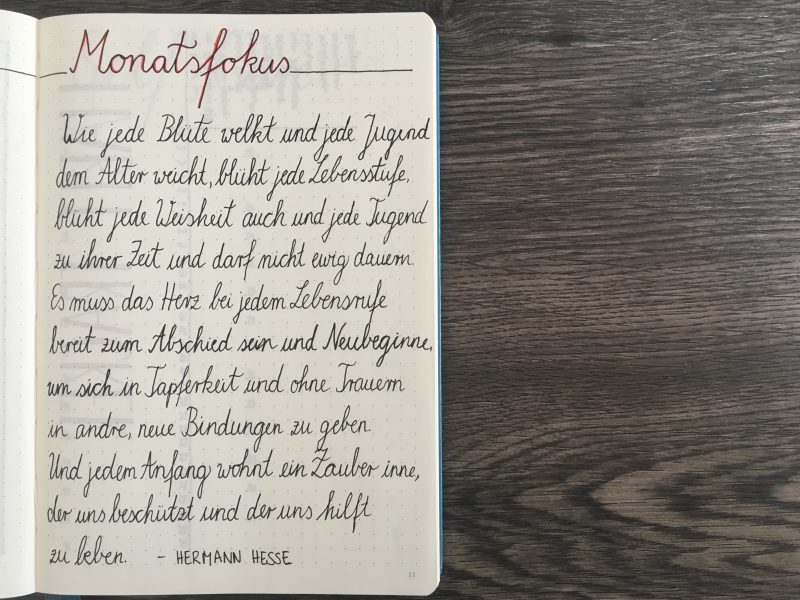 Monatsfokus
Wie jede Blüte welkt und jede Jugend
dem Alter weicht, blüht jede Lebensstufe,
blüht jede Weisheit auch und jede Tugend
zu ihrer Zeit und darf nicht ewig dauern.
Es muss das Herz bei jedem Lebensrufe
bereit zum Abschied sein und Neubeginne,
um sich in Tapferkeit und ohne Trauern
in andre, neue Bindungen zu geben.
Und jedem Anfang wohnt ein Zauber inne,
der uns beschützt und der uns hilft
zu leben. - HERMANN HESSE
11